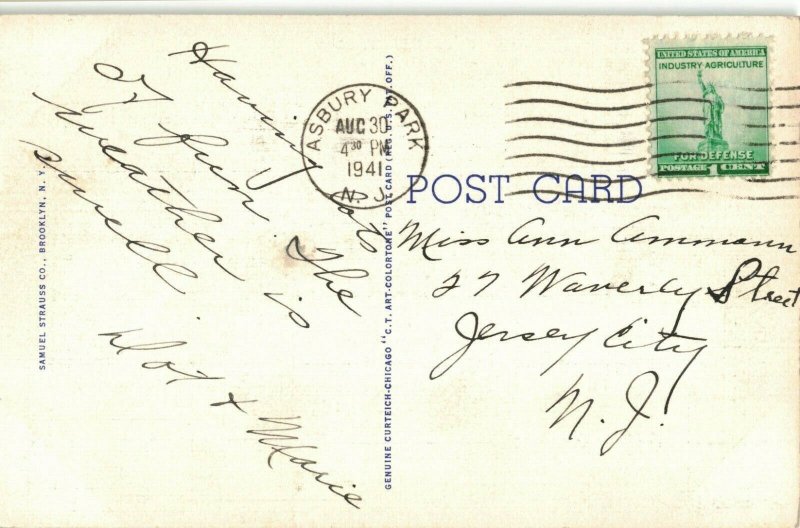 Having lots
of fun. The
weather is
swell.
Dot + Marie
ASBURY PARK
AUG 30
4 30 PM
1941
N. J.
UNITED STATES OF AMERICA
INDUSTRY-AGRICULTURE
FOR DEFENSE
POSTAGE 1 CENT
POST CARD
Miss Ann Ammann
27 Waverly Street
Jersey City
N. J.
SAMUEL STRAUSS CO., BROOKLYN, N. Y.
GENUINE CURTEICH-CHICAGO "C. T. ART-COLORTONE" POST CARD (REG. U. S. PAT. OFF.)